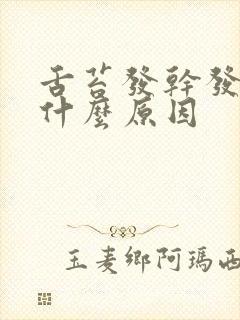 舌苔發幹發
什麼原因
玉麦鄉阿瑪西